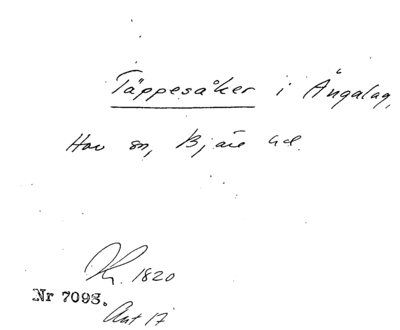 Täppesåker i Ängalag,
Hov sn, Bjäre hd.
Kr. 1820
Nr 7098.
Ant 17